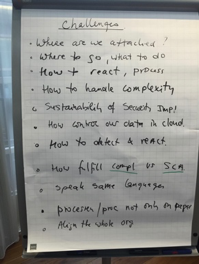 Challenges
• Where are we attacked?
• Where to go, what to do
• How to react, process
• How to handle complexity
• Sustainability of Security Impl
• How control our data in cloud
• How to detect & react
• How fulfill compl vs
• Speak same language
• processes / not only on paper
• Align the whole org